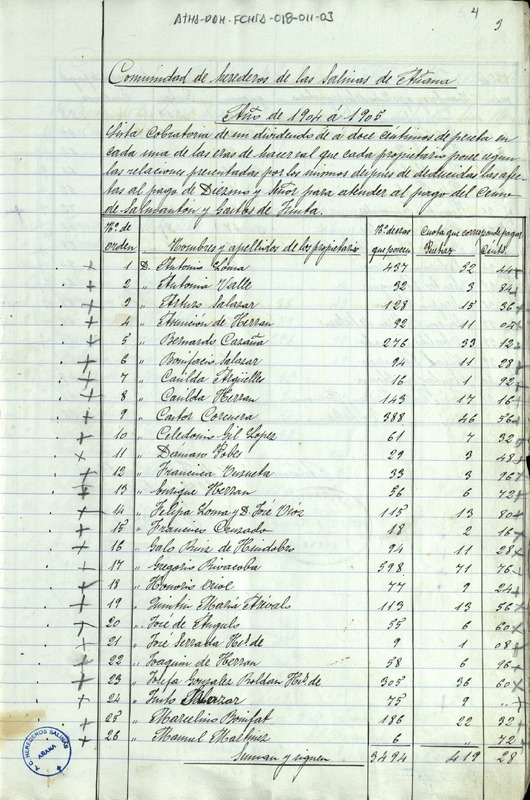 ATHA-DAH-FCHSA-018-011-03
4
3
Comunidad de herederos de las Salinas de Añana
Año de 1904 á 1905
Lista Cobratoria de un dividendo de á doce céntimos de peseta en
cada una de las eras de hacer sal que cada propietario posee segun
las relaciones presentadas por los mismos despues de deducidas las afec
tas al pago de Diezmo y Señor para atender al pago del Censo
de Salmanton y Gastos de Junta.
Nº de orden Nombres y apellidos de los propietarios Nº de eras que poseen Cuota que corresponde pagar Pesetas Cénts.
1 D. Antonio Loma 437 52 44
2 " Antonia Valle 32 3 84
3 " Arturo Salazar 128 15 36
4 " Asunción de Herran 92 11 04
5 " Bernardo Cazaña 276 33 12
6 " Bonifacio Salazar 94 11 28
7 " Casilda Argüelles 16 1 92
8 " Casilda Herran 143 17 16
9 " Castor Corcuera 388 46 56
10 " Celedonio Gil Lopez 61 7 32
11 " Dámaso Pobes 29 3 48
12 " Francisca 33 3 96
13 " Enrique Herran 56 6 72
14 " Felipa Loma y D. José 115 13 80
15 " Francisco 18 2 16
16 " Galo Ruiz de 94 11 28
17 " Gregorio Rivacoba 598 71 76
18 " Honorio Oriol 77 9 24
19 " María Arévalo 113 13 56
20 " José de Angulo 55 6 60
21 " José Serralta Hº de 9 1 08
22 " Joaquin de Herran 58 6 96
23 " Josefa Gonzalez Roldan Hº de 305 36 60
24 " Justo Salazar 75 9 "
25 " Marcelino Bonifat 186 22 32
26 " Manuel Martinez 6 " 72
Suman y siguen 3494 419 28
A.C. HEREDEROS SALINAS
AÑANA